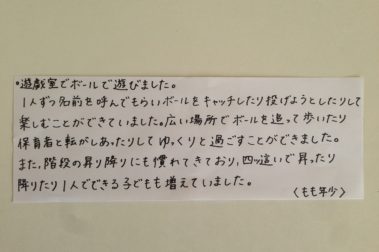 ・遊戯室でボールで遊びました。
1人ずつ名前を呼んでもらいボールをキャッチしたり投げようとしたりして
楽しむことができていました。広い場所でボールを追って歩いたり
保育者と転がしあったりしてゆっくりと過ごすことができました。
また、階段の昇り降りにも慣れてきており、四ッ這いで昇ったり
降りたり1人でできる子どもも増えていました。
〈もも年少〉